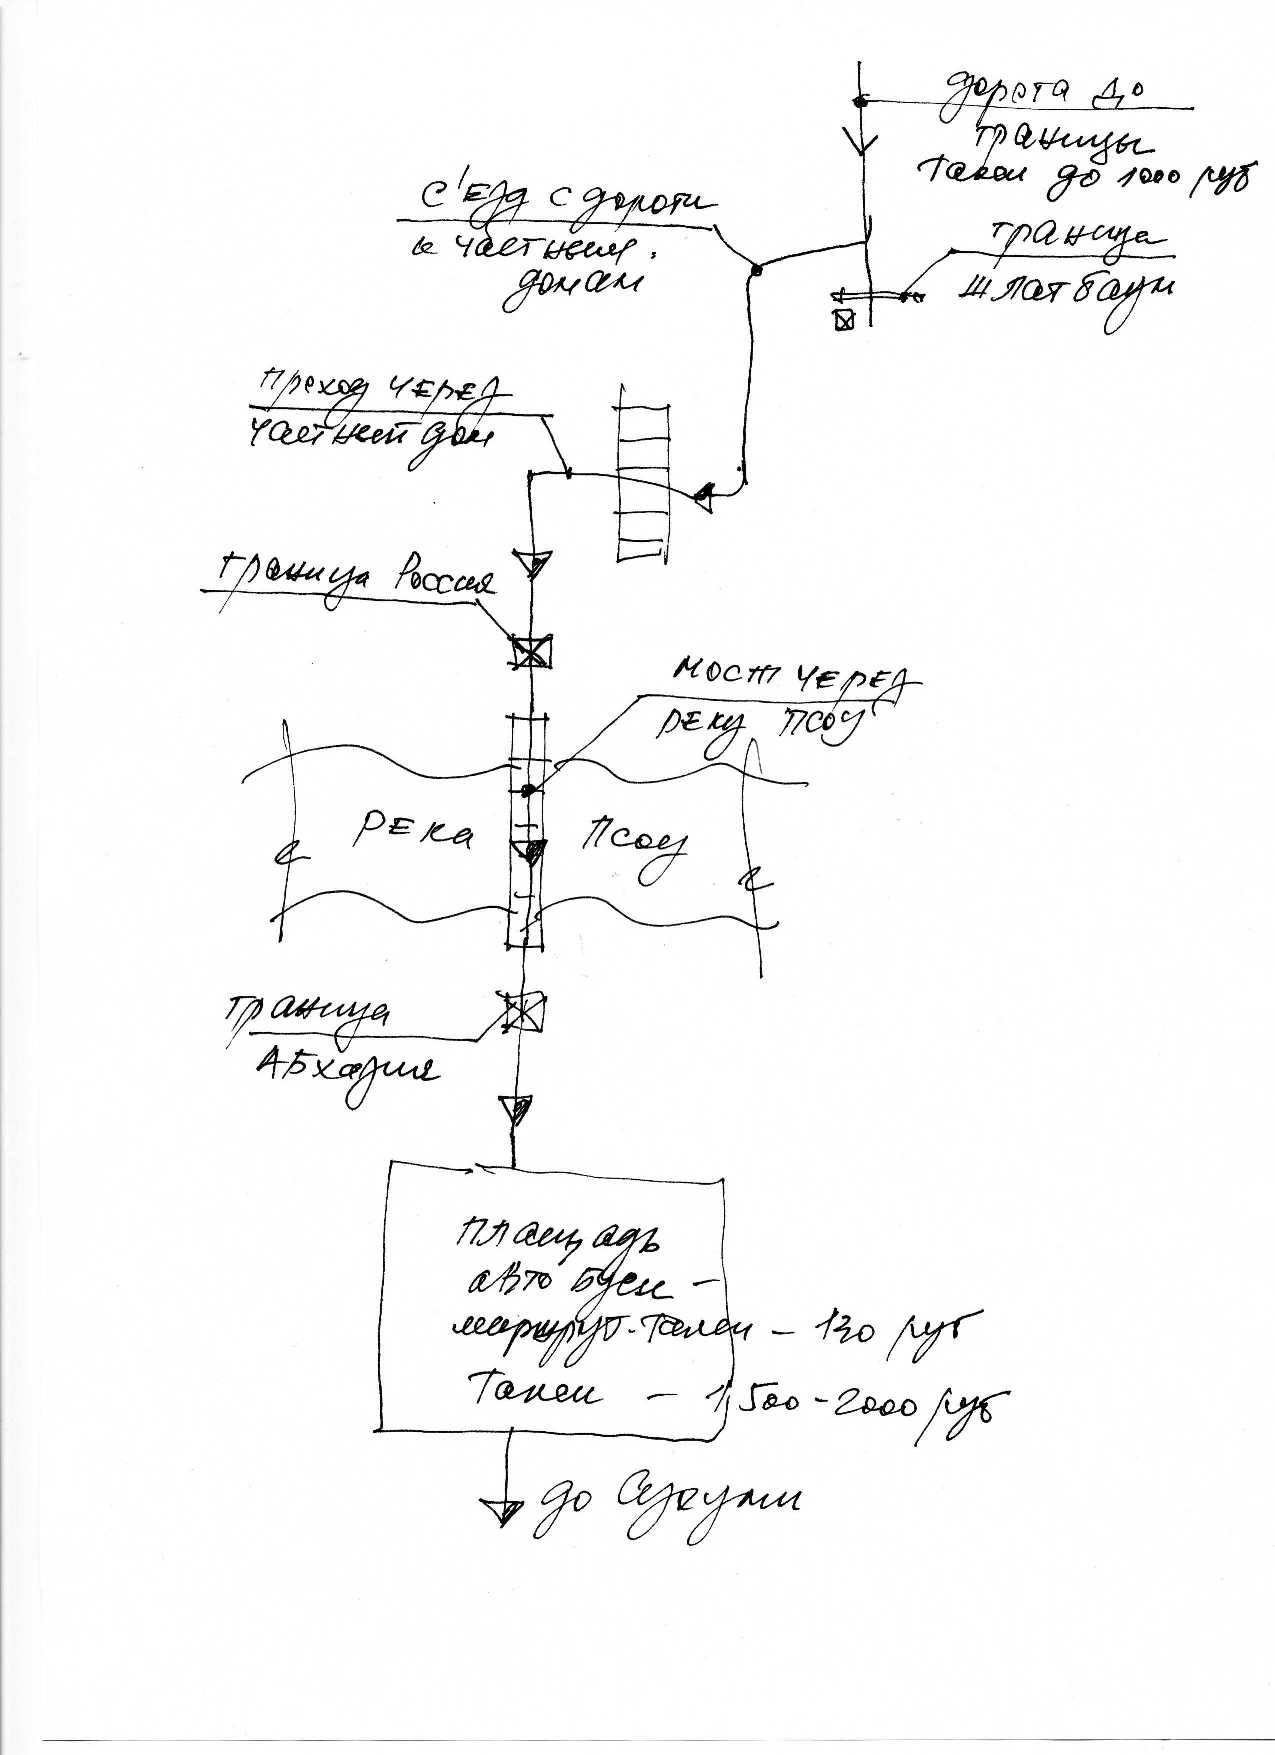 дорога до
границы
Такси до 1000 руб
с'езд с дороги
к частным
домам
граница
шлагбаум
преход через
частный дом
граница Россия
мост через
реку Псоу
река Псоу
граница
Абхазия
площадь
автобусы -
маршрут-такси - 130 руб
Такси - 1,500-2000 руб
до Сухуми